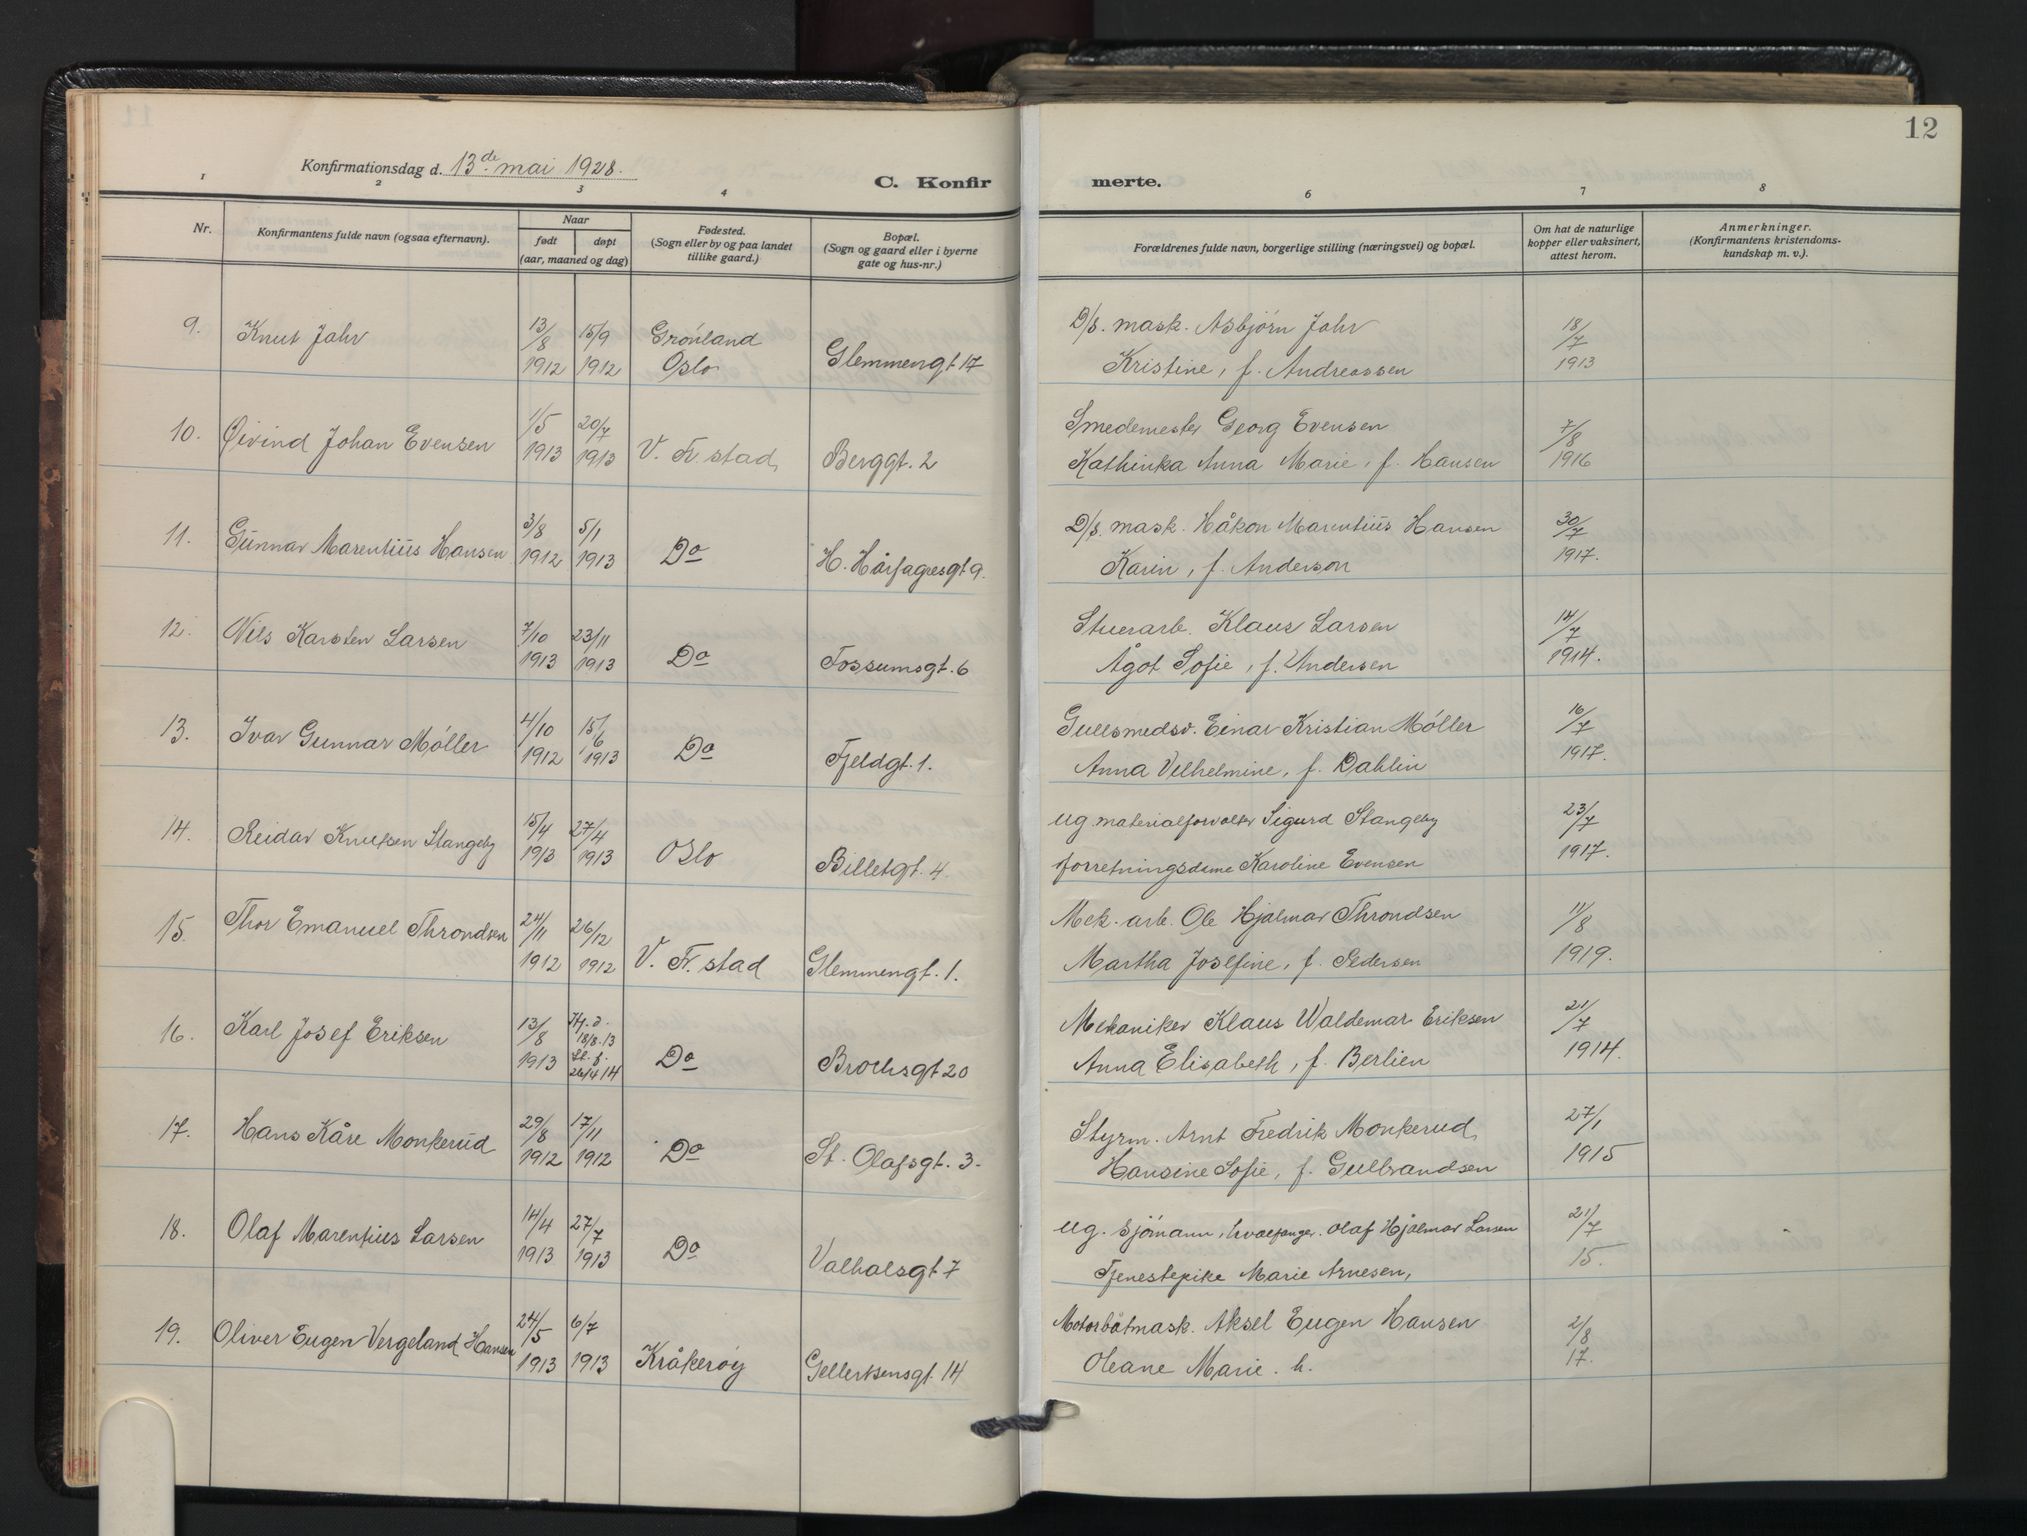 12
Konfirmationsdag d. 13de mai 1928.
C. Konfir merte.
1 2 3 4 6 7 8
Nr.
Konfirmantens fulde navn (ogsaa efternavn).
Naar
født døpt
(aar, maaned og dag)
Fødested.
(Sogn eller by og paa landet
tillike gaard.)
Bopæl.
(Sogn og gaard eller i byerne
gate og hus-nr.)
Forældrenes fulde navn, borgerlige stilling (næringsvei) og bopæl.
Om hat de naturlige
kopper eller vaksinert,
attest herom.
Anmerkninger.
(Konfirmantens kristendoms-
kundskap m. v.).
9. Knut Jahr 13/8 1912 15/9 1912 Grønland Oslo Glemmengt 17 D/s. mask. Asbjørn Jahr 18/7 1913
Kristine, f. Andreassen
10. Øivind Johan Evensen 1/5 1913 20/7 1913 V. Fr.stad Berggt. 2 Smedemester Georg Evensen 7/8 1916
Kathinka Anna Marie, f. Hansen
11. Gunnar Marentius Hansen 3/8 1912 5/1 1913 Do H. Hårfagresgt 9. D/s. mask. Håkon Marentius Hansen 30/7 1917.
Karin, f. Anderson
12. Nils Karsten Larsen 7/10 1913 23/11 1913 Do Fossumsgt. 6 Stuerarb. Klaus Larsen 14/7 1914.
Ågot Sofie, f. Andersen
13. Ivar Gunnar Møller 4/10 1912 15/6 1913 Do Fjeldgt. 1. Gullsmedsv. Einar Kristian Møller 16/7 1917.
Anna Vilhelmine, f. Dahlin
14. Reidar Knutsen Stangeby 15/4 1913 27/4 1913 Oslo Billetgt. 4. ug. materialforvalter Sigurd Stangeby 23/7 1917.
forretningsdame Karoline Evensen
15. Thor Emanuel Throndsen 24/11 1912 26/12 1912 V. Fr.stad Glemmengt. 1. Mek. arb. Ole Hjalmar Throndsen 11/8 1919.
Martha Josefine, f. Pedersen
16. Karl Josef Eriksen 13/8 1913 Hj. d. 18/8.13 St. f. 26/4 14 Do Brochsgt 20 Mekaniker Klaus Waldemar Eriksen 21/7 1914.
Anna Elisabeth, f. Berlien
17. Hans Kåre Monkerud 29/8 1912 17/11 1912 Do St. Olafsgt. 3. Styrm. Arnt Fredrik Monkerud, 27/1 1915
Hansine Sofie, f. Gulbrandsen
18. Olaf Marentius Larsen 14/4 1913 27/7 1913 Do Valhalsgt 7 ug. sjømann, hvalfanger. Olaf Hjalmar Larsen 21/7 15.
Tjenestepike Marie Arnesen,
19. Oliver Eugen Vergeland Hansen 24/5 1913 6/7 1913 Kråkerøy Gellertsensgt. 14 Motorbåtmask. Aksel Eugen Hansen 2/8 17.
Oleane Marie. h.